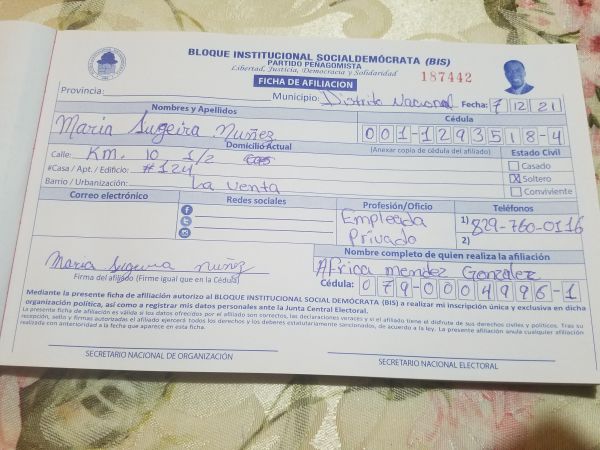 BLOQUE INSTITUCIONAL SOCIALDEMÓCRATA (BIS)
PARTIDO PEÑAGOMISTA
Libertad, Justicia, Democracia y Solidaridad
187442
FICHA DE AFILIACION
Provincia: Municipio: Distrito Nacional Fecha: 7 12 21
Nombres y Apellidos Cédula
Maria Sugeira Nuñez 001-1293518-4
Domicilio Actual (Anexar copia de cédula del afiliado) Estado Civil
Calle: Km. 10 1/2 Casado
#Casa / Apt. / Edificio: #124 X Soltero
Barrio / Urbanización: La Venta Conviviente
Correo electrónico Redes sociales Profesión/Oficio Teléfonos
Empleada 1) 829-760-0116
Privado 2)
Nombre completo de quien realiza la afiliación
Maria Sugeira nuñez Africa mendez Gonzalez
Firma del afiliado (Firme igual que en la Cédula) Cédula: 079-0004996-1
Mediante la presente ficha de afiliación autorizo al BLOQUE INSTITUCIONAL SOCIAL DEMÓCRATA (BIS) a realizar mi inscripción única y exclusiva en dicha
organización política, así como a registrar mis datos personales ante la Junta Central Electoral.
La presente ficha de afiliación es válida si los datos ofrecidos por el afiliado son correctos, las declaraciones veraces y si el afiliado tiene el disfrute de sus derechos civiles y políticos. Tras su
recepción, sello y firmas autorizadas el afiliado ejercerá todos los derechos y los deberes estatutariamente sancionados, de acuerdo a la ley. La presente afiliación anula cualquier afiliación
realizada con anterioridad a la fecha que aparece en esta ficha.
SECRETARIO NACIONAL DE ORGANIZACIÓN SECRETARIO NACIONAL ELECTORAL